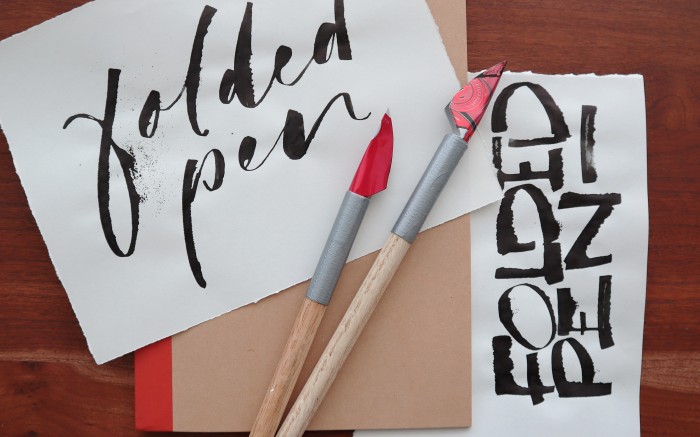 folded
pen
FOLDED
PEN